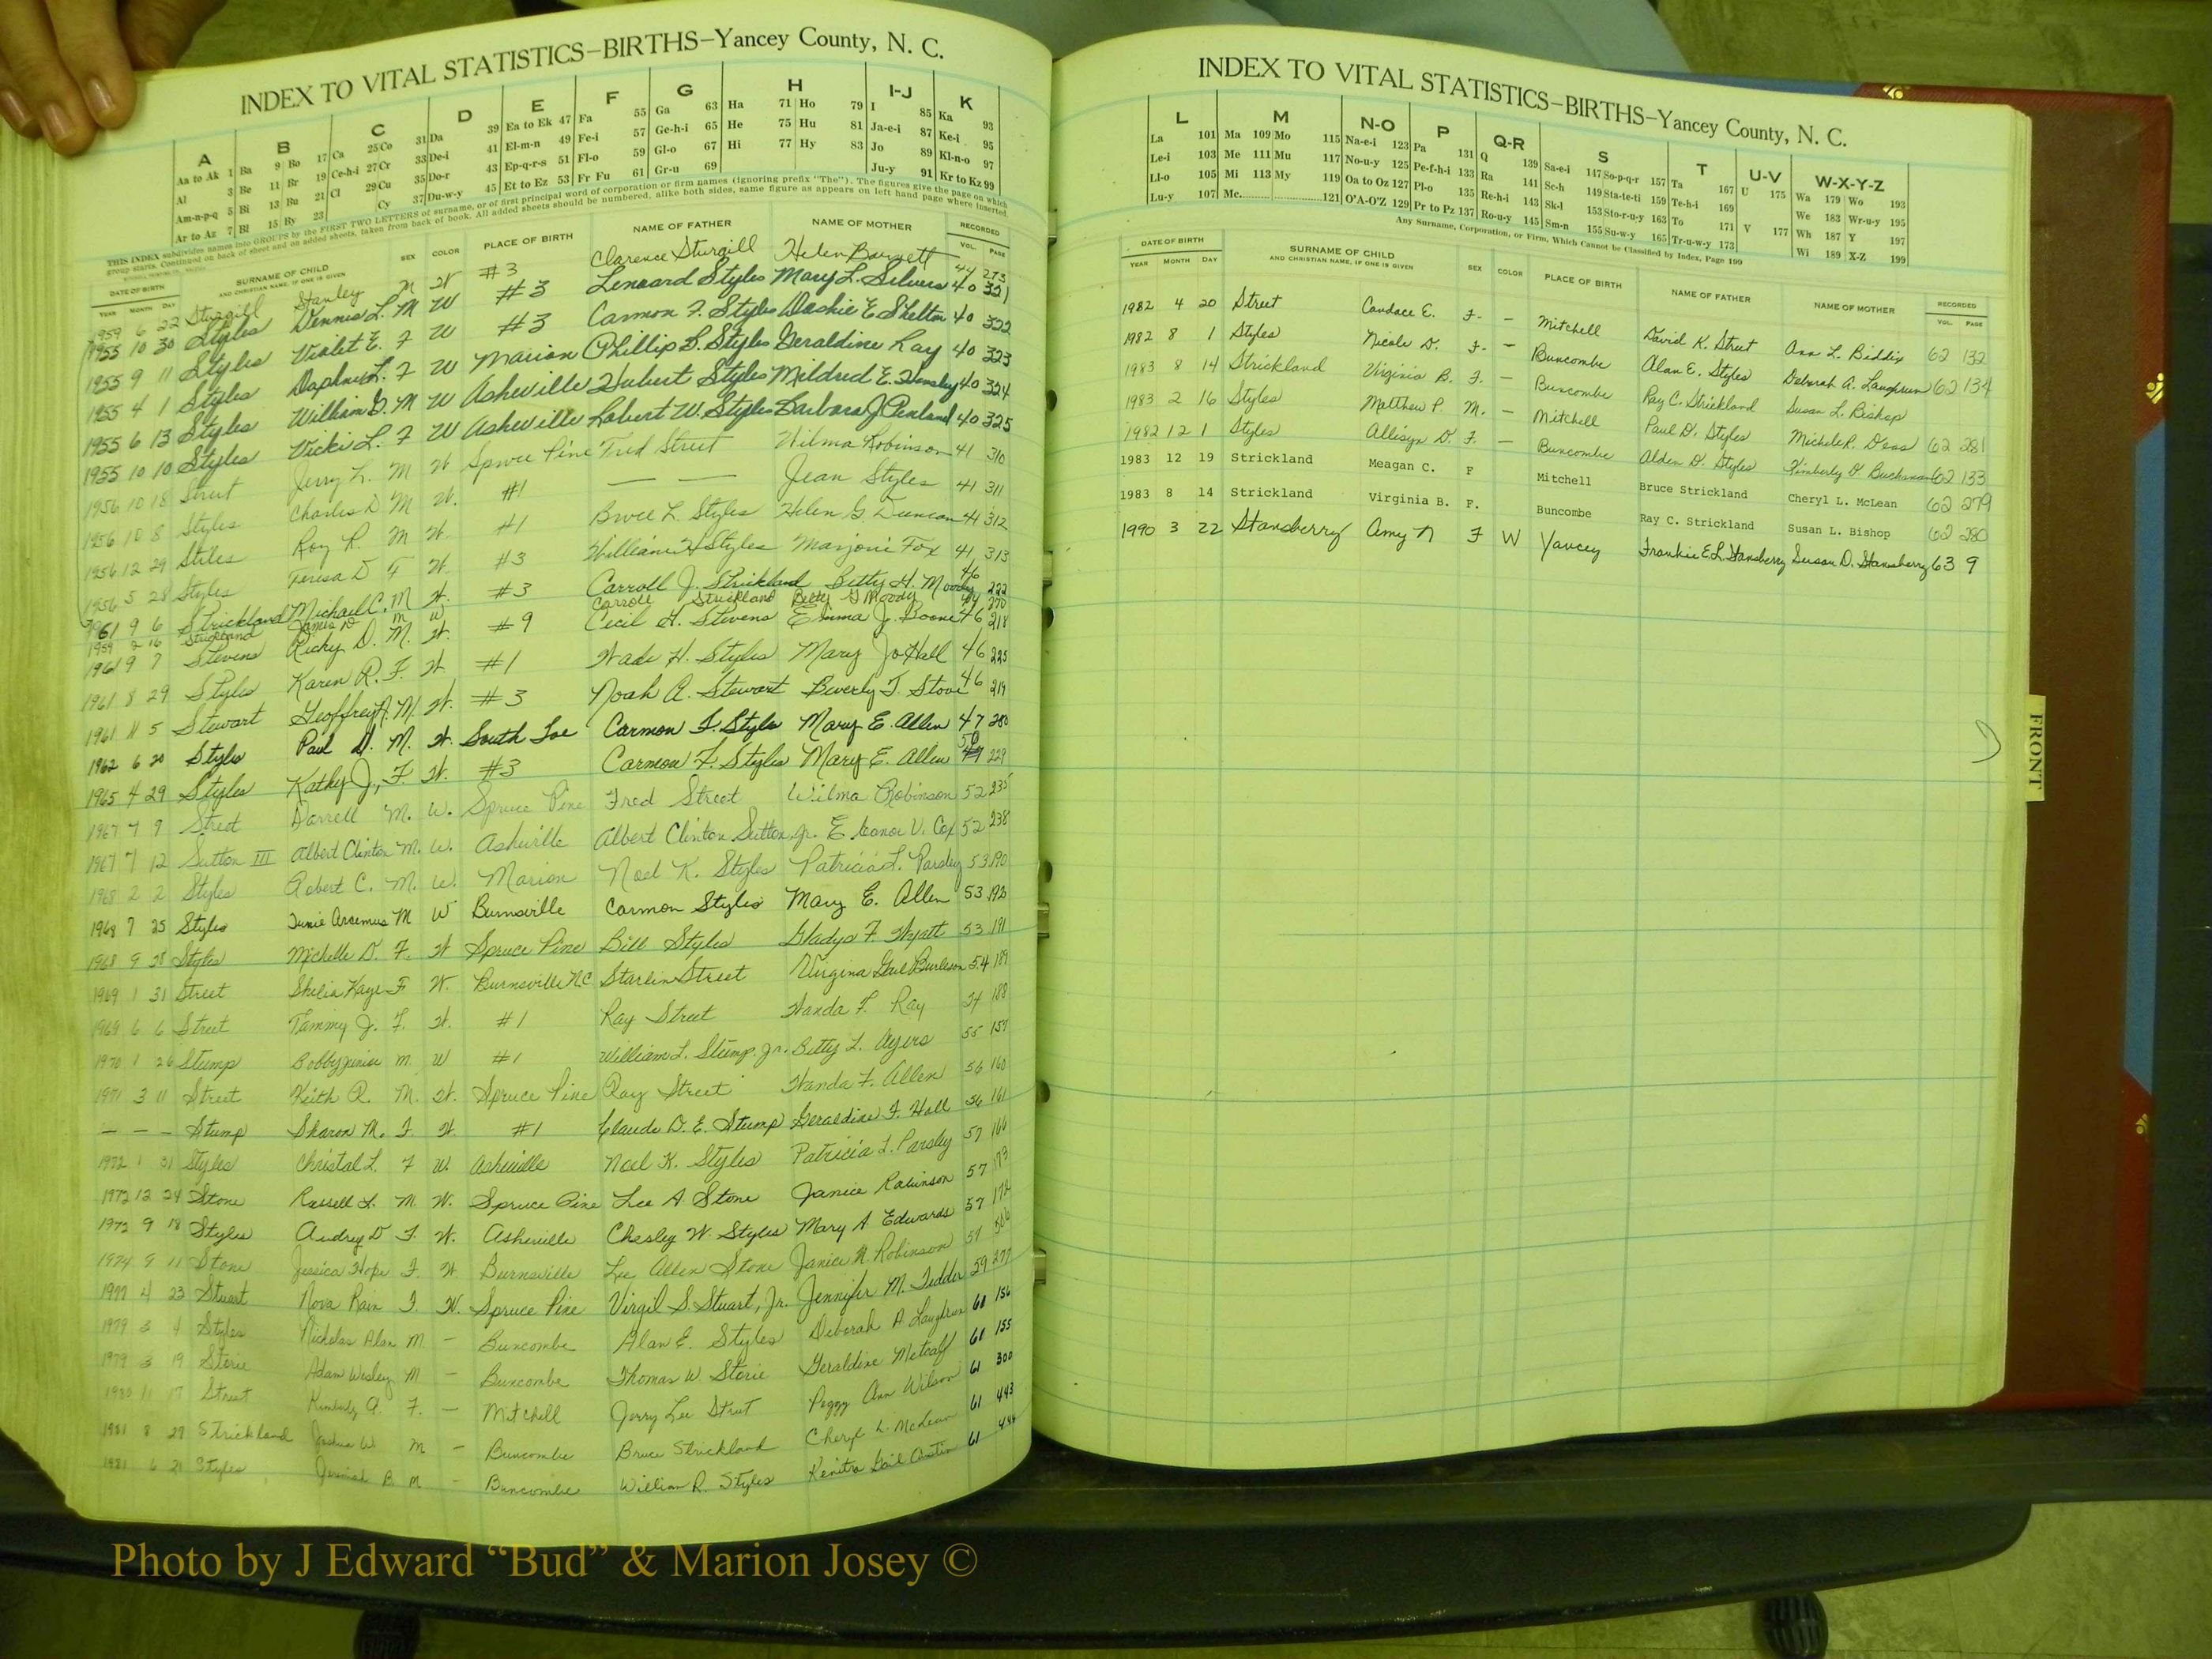 INDEX TO VITAL STATISTICS–BIRTHS–Yancey County, N. C.
A B C D E F G H I-J K
Aa to Ak 1 Ba 9 Bo 17 Ca 25 Co 31 Da 39 Ea to Ek 47 Fa 55 Ga 63 Ha 71 Ho 79 I 85 Ka 93
Al 3 Be 11 Br 19 Ce-h-i 27 Cr 33 De-i 41 El-m-n 49 Fe-i 57 Ge-h-i 65 He 75 Hu 81 Ja-e-i 87 Ke-i 95
Am-n-p-q 5 Bi 13 Bu 21 Cl 29 Cu 35 Do-r 43 Ep-q-r-s 51 Fl-o 59 Gl-o 67 Hi 77 Hy 83 Jo 89 Kl-n-o 97
Ar to Az 7 Bl 15 By 23 Cy 37 Du-w-y 45 Et to Ez 53 Fr Fu 61 Gr-u 69 Ju-y 91 Kr to Kz 99
THIS INDEX subdivides names into GROUPS by the FIRST TWO LETTERS of surname, or of first principal word of corporation or firm names (ignoring prefix "The"). The figures give the page on which
group starts. Continued on back of sheet and on added sheets, taken from back of book. All added sheets should be numbered, alike both sides, same figure as appears on left hand page where inserted.
DATE OF BIRTH SURNAME OF CHILD SEX COLOR PLACE OF BIRTH NAME OF FATHER NAME OF MOTHER RECORDED
YEAR MONTH DAY AND CHRISTIAN NAME, IF ONE IS GIVEN VOL. PAGE
1959 6 22 Sturgill Stanley M W #3 Clarence Sturgill Helen Barnett 44 273
1955 10 30 Styles Dennis L. M W #3 Lennard Styles Mary L. Silvers 40 321
1955 9 11 Styles Violet E. F W #3 Carmon F. Styles Dashie E Shelton 40 322
1955 4 1 Styles Daphne L. F W Marion Phillip B. Styles Geraldine Ray 40 323
1955 6 13 Styles William G. M W Asheville Hubert Styles Mildred E. Hensley 40 324
1955 10 10 Styles Vicki L. F W Asheville Robert W. Styles Barbara J Penland 40 325
1956 10 18 Street Jerry L. M W Spruce Pine Fred Street Wilma Robinson 41 310
1956 10 8 Styles Charles D M W. #1 — — Jean Styles 41 311
1956 12 29 Stiles Roy R. M W. #1 Bruce L Styles Helen G. Duncan 41 312
1956 5 28 Styles Teresa D F W. #3 William H Styles Marjorie Fox 41 313
1961 9 6 Strickland Michael C. M W. #3 Carroll J. Strickland Betty H. Moody 46 222
1959 2 16 Strickland James D M W Carroll Strickland Betty G Moody 44 270
1961 9 7 Stevens Ricky D. M. W. #9 Cecil H. Stevens Emma J. Boone 46 218
1961 8 29 Styles Karen R. F. W #1 Wade H. Styles Mary Jo Hall 46 225
1961 11 5 Stewart Geoffrey A. M. W. #3 Noah A. Stewart Beverly J. Stove 46 219
1962 6 20 Styles Paul D. M. W. South Toe Carmon F. Styles Mary E. Allen 47 280
1965 4 29 Styles Kathy J., F W. #3 Carmon F. Styles Mary E. Allen 50 229
1967 7 9 Street Darrell M. W. Spruce Pine Fred Street Wilma Robinson 52 235
1967 7 12 Sutton III Albert Clinton M. W. Asheville Albert Clinton Sutton, Jr. Eleanor V. Cox 52 238
1968 2 2 Styles Robert C. M. W. Marion Noel K. Styles Patricia L. Parsley 53 190
1968 7 25 Styles Junie M W Burnsville Carmon Styles Mary E. Allen 53 192
1968 9 28 Styles Michelle D. F. W Spruce Pine Bill Styles Gladys F. Wyatt 53 191
1969 1 31 Street Shelia Kaye F W. Burnsville NC Starlin Street Virgina Gail Burleson 54 189
1969 6 6 Street Tammy J. F. W. #1 Ray Street Wanda F. Ray 54 188
1970 1 26 Stump Bobby Junior M W #1 William L. Stump, Jr. Betty L. Ayers 55 157
1971 3 11 Street Keith R. M. W. Spruce Pine Ray Street Wanda F. Allen 56 160
— — — Stump Sharon M. F. W. #1 Claude D. E. Stump Geraldine F. Hall 56 161
1972 1 31 Styles Christal L. F W. Asheville Noel K. Styles Patricia L. Parsley 57 166
1972 12 24 Stone Russell L. M. W. Spruce Pine Lee A. Stone Janice Robinson 57 173
1972 9 18 Styles Audrey D F. W. Asheville Chesley W. Styles Mary A. Edwards 57 172
1974 9 11 Stone Jessica Hope F. W Burnsville Lee Allen Stone Janice N. Robinson 59
1977 4 23 Stuart Nova Rain F. W. Spruce Pine Virgil S. Stuart, Jr. Jennifer M. Tedder 59 277
1979 3 4 Styles Nicholas Alan M – Buncombe Alan E. Styles Deborah A. Laughrun 60 156
1979 3 19 Storie Adam Wesley M – Buncombe Thomas W. Storie Geraldine Metcalf 60 155
1980 11 17 Street Kimberly A. F. – Mitchell Jerry Lee Street Peggy Ann Wilson 61 300
1981 8 27 Strickland Joshua W. M – Buncombe Bruce Strickland Cheryl L. McLean 61 443
1981 6 21 Styles Jeremiah B. M – Buncombe William R. Styles Kenitra Gail Austin 61 444
INDEX TO VITAL STATISTICS–BIRTHS–Yancey County, N. C.
L M N-O P Q-R S T U-V W-X-Y-Z
La 101 Ma 109 Mo 115 Na-e-i 123 Pa 131 Q 139 Sa-e-i 147 So-p-q-r 157 Ta 167 U 175 Wa 179 Wo 193
Le-i 103 Me 111 Mu 117 No-u-y 125 Pe-f-h-i 133 Ra 141 Sc-h 149 Sta-te-ti 159 Te-h-i 169 We 183 Wr-u-y 195
Ll-o 105 Mi 113 My 119 Oa to Oz 127 Pl-o 135 Re-h-i 143 Sk-l 153 Sto-r-u-y 163 To 171 V 177 Wh 187 Y 197
Lu-y 107 Mc. 121 O'A-O'Z 129 Pr to Pz 137 Ro-u-y 145 Sm-n 155 Su-w-y 165 Tr-u-w-y 173 Wi 189 X-Z 199
Any Surname, Corporation, or Firm, Which Cannot be Classified by Index, Page 199
DATE OF BIRTH SURNAME OF CHILD SEX COLOR PLACE OF BIRTH NAME OF FATHER NAME OF MOTHER RECORDED
YEAR MONTH DAY AND CHRISTIAN NAME, IF ONE IS GIVEN VOL. PAGE
1982 4 20 Street Candace E. F. – Mitchell David K. Street Ann L. Biddix 62 132
1982 8 1 Styles Nicole D. F. – Buncombe Alan E. Styles Deborah A. Laughrun 62 134
1983 8 14 Strickland Virginia B. F. – Buncombe Ray C. Strickland Susan L. Bishop
1983 2 16 Styles Matthew P. M. – Mitchell Paul D. Styles Michele R. Deas 62 281
1982 12 1 Styles Allisyn D. F. – Buncombe Alden D. Styles Kimberly D. Buchanan 62 133
1983 12 19 Strickland Meagan C. F Mitchell Bruce Strickland Cheryl L. McLean 62 279
1983 8 14 Strickland Virginia B. F. Buncombe Ray C. Strickland Susan L. Bishop 62 280
1990 3 22 Stansberry Amy N F W Yancey Frankie E.L. Stansberry Susan D. Stansberry 63 9
FRONT
Photo by J Edward “Bud” & Marion Josey ©